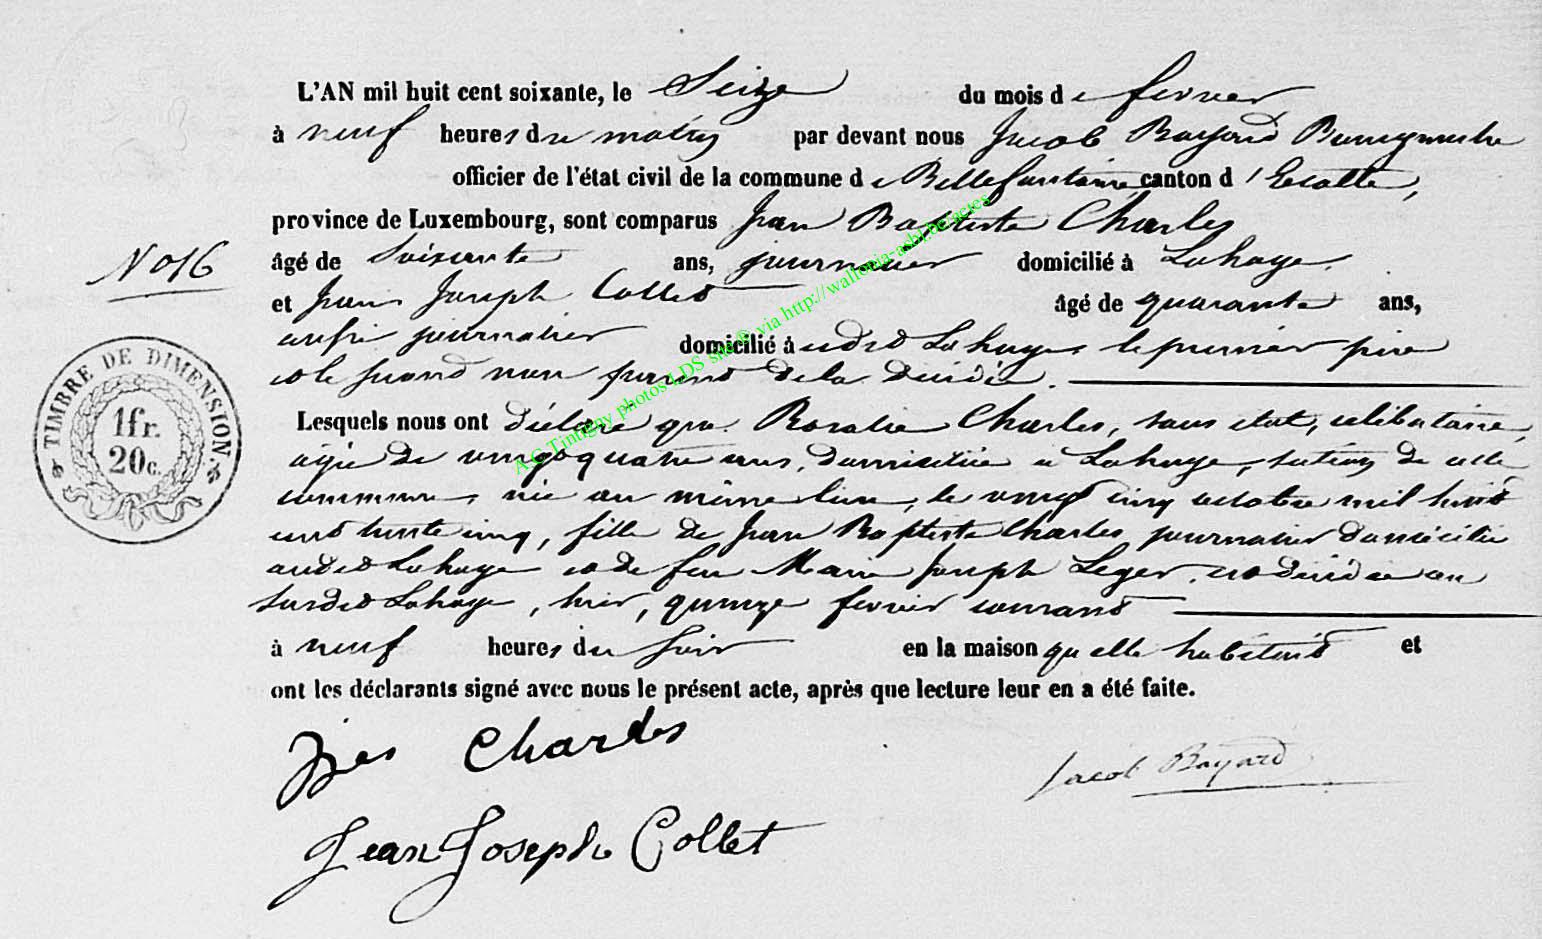 L'AN mil huit cent soixante, le Seize du mois de fevrier
à neuf heures du matin par devant nous Jacob Bayard Bourgmestre
officier de l'état civil de la commune de Bellefontaine, canton d'Etalle,
province de Luxembourg, sont comparus Jean Baptiste Charles
No 16
âgé de Soixante ans, journalier domicilié à Lahage.
et Jean Joseph Collet âgé de quarante ans,
aussi journalier domicilié à udit Lahage, le premier père
et le second non parent de la décédée.
TIMBRE DE DIMENSION
1fr.
20c.
Lesquels nous ont déclaré que Rosalie Charles, sans état, célibataire,
agée de vingt quatre ans, domiciliée à Lahage, section de cette
commune, née au même lieu, le vingt cinq octobre mil huit
cent trente cinq, fille de Jean Baptiste Charles, journalier domicilié
audit Lahage et de feu Marie Joseph Leger, est décédée au
susdit Lahage, hier, quinze fevrier courant
à neuf heures du soir en la maison qu'elle habitait et
ont les déclarants signé avec nous le présent acte, après que lecture leur en a été faite.
Charles
Jacob Bayard
Jean Joseph Collet
A.G Tintigny photos LDS site® via http://wallonia-asbl.be/actes